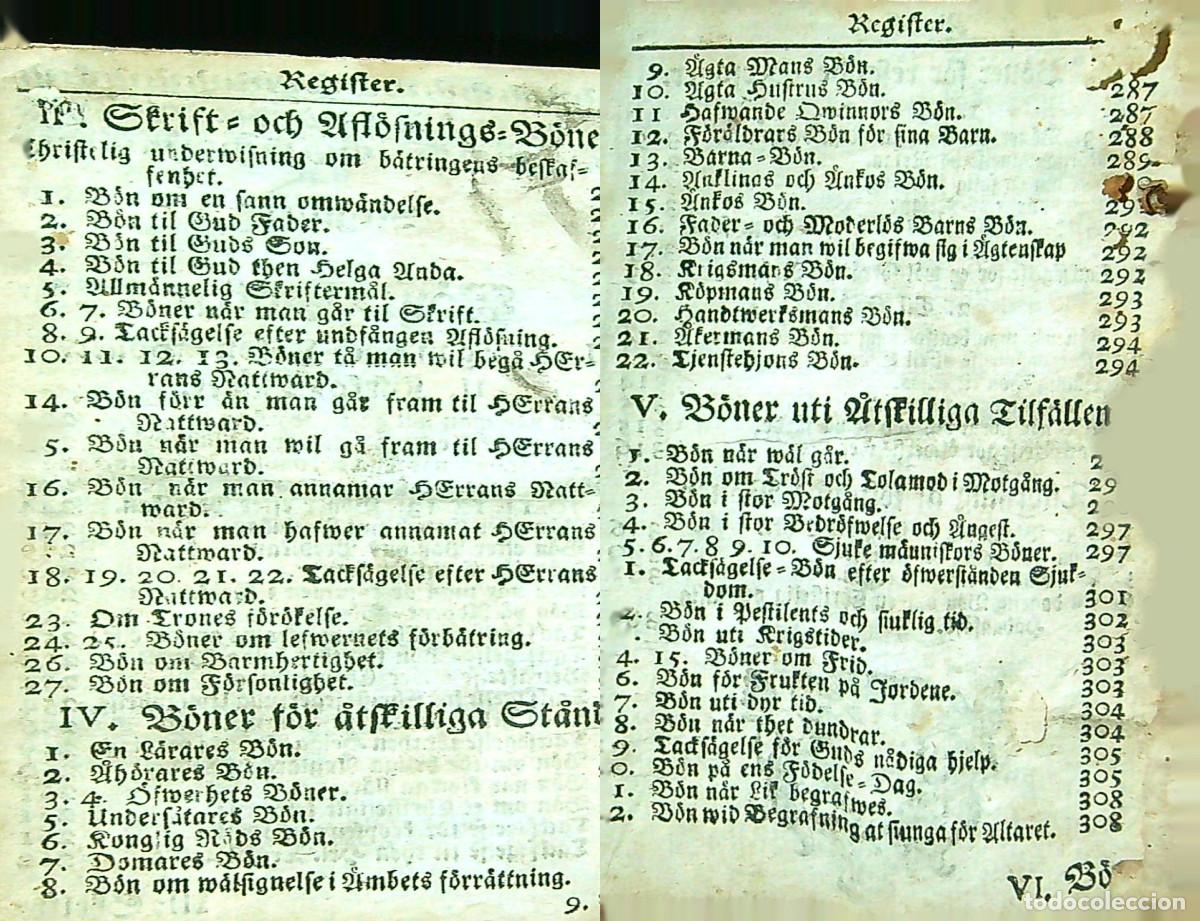 Register.
III. Skrift- och Aflösnings-Böne
Christelig underwisning om bätringens beskaf-
fenhet.
1. Bön om en sann omwändelse.
2. Bön til Gud Fader.
3. Bön til Guds Son.
4. Bön til Gud then Helga Anda.
5. Allmännelig Skriftermål.
6. 7. Böner när man går til Skrift.
8. 9. Tacksägelse efter undfången Aflösning.
10. 11. 12. 13. Böner tå man wil begå HEr-
rans Nattward.
14. Bön förr än man går fram til HErrans
Nattward.
5. Bön när man wil gå fram til HErrans
Nattward.
16. Bön när man annamar HErrans Natt-
ward.
17. Bön när man hafwer annamat HErrans
Nattward.
18. 19. 20. 21. 22. Tacksägelse efter HErrans
Nattward.
23. Om Trones förökelse.
24. 25. Böner om lefwernets förbätring.
26. Bön om Barmhertighet.
27. Bön om Försonlighet.
IV. Böner för åtskilliga Stånd
1. En Lärares Bön.
2. Åhörares Bön.
3. 4. Öfwerhets Böner.
5. Undersåtares Bön.
6. Konglig Råds Bön.
7. Domares Bön.
8. Bön om wälsignelse i Ämbets förrättning.
9.
Register.
9. Ägta Mans Bön.
10. Ägta Hustrus Bön. 287
11 Hafwande Qwinnors Bön. 287
12. Föräldrars Bön för sina Barn. 288
13. Barna-Bön. 289
14. Änklings och Änkos Bön.
15. Änkos Bön. 29
16. Fader- och Moderlös Barns Bön. 292
17. Bön när man wil begifwa sig i Ägtenskap 292
18. Krigsmans Bön. 292
19. Köpmans Bön. 293
20. Handtwerksmans Bön. 293
21. Åkermans Bön. 294
22. Tjenstehjons Bön. 294
V. Böner uti Åtskilliga Tilfällen
1. Bön när wäl går. 2
2. Bön om Tröst och Tolamod i Motgång. 29
3. Bön i stor Motgång. 2
4. Bön i stor Bedröfwelse och Ångest. 297
5. 6. 7. 8 9. 10. Sjuke människors Böner. 297
1. Tacksägelse-Bön efter öfwerstånden Sjuk-
dom. 301
2. Bön i Pestilents och siuklig tid. 302
. Bön uti Krigstider. 303
4. 15. Böner om Frid. 303
6. Bön för Frukten på Jordene. 303
7. Bön uti dyr tid. 304
8. Bön när thet dundrar. 304
9. Tacksägelse för Guds nådiga hjelp. 305
0. Bön på ens Födelse-Dag. 305
1. Bön när Lik begrafwes. 308
2. Bön wid Begrafning at siunga för Altaret. 308
VI. Bö
todocoleccion